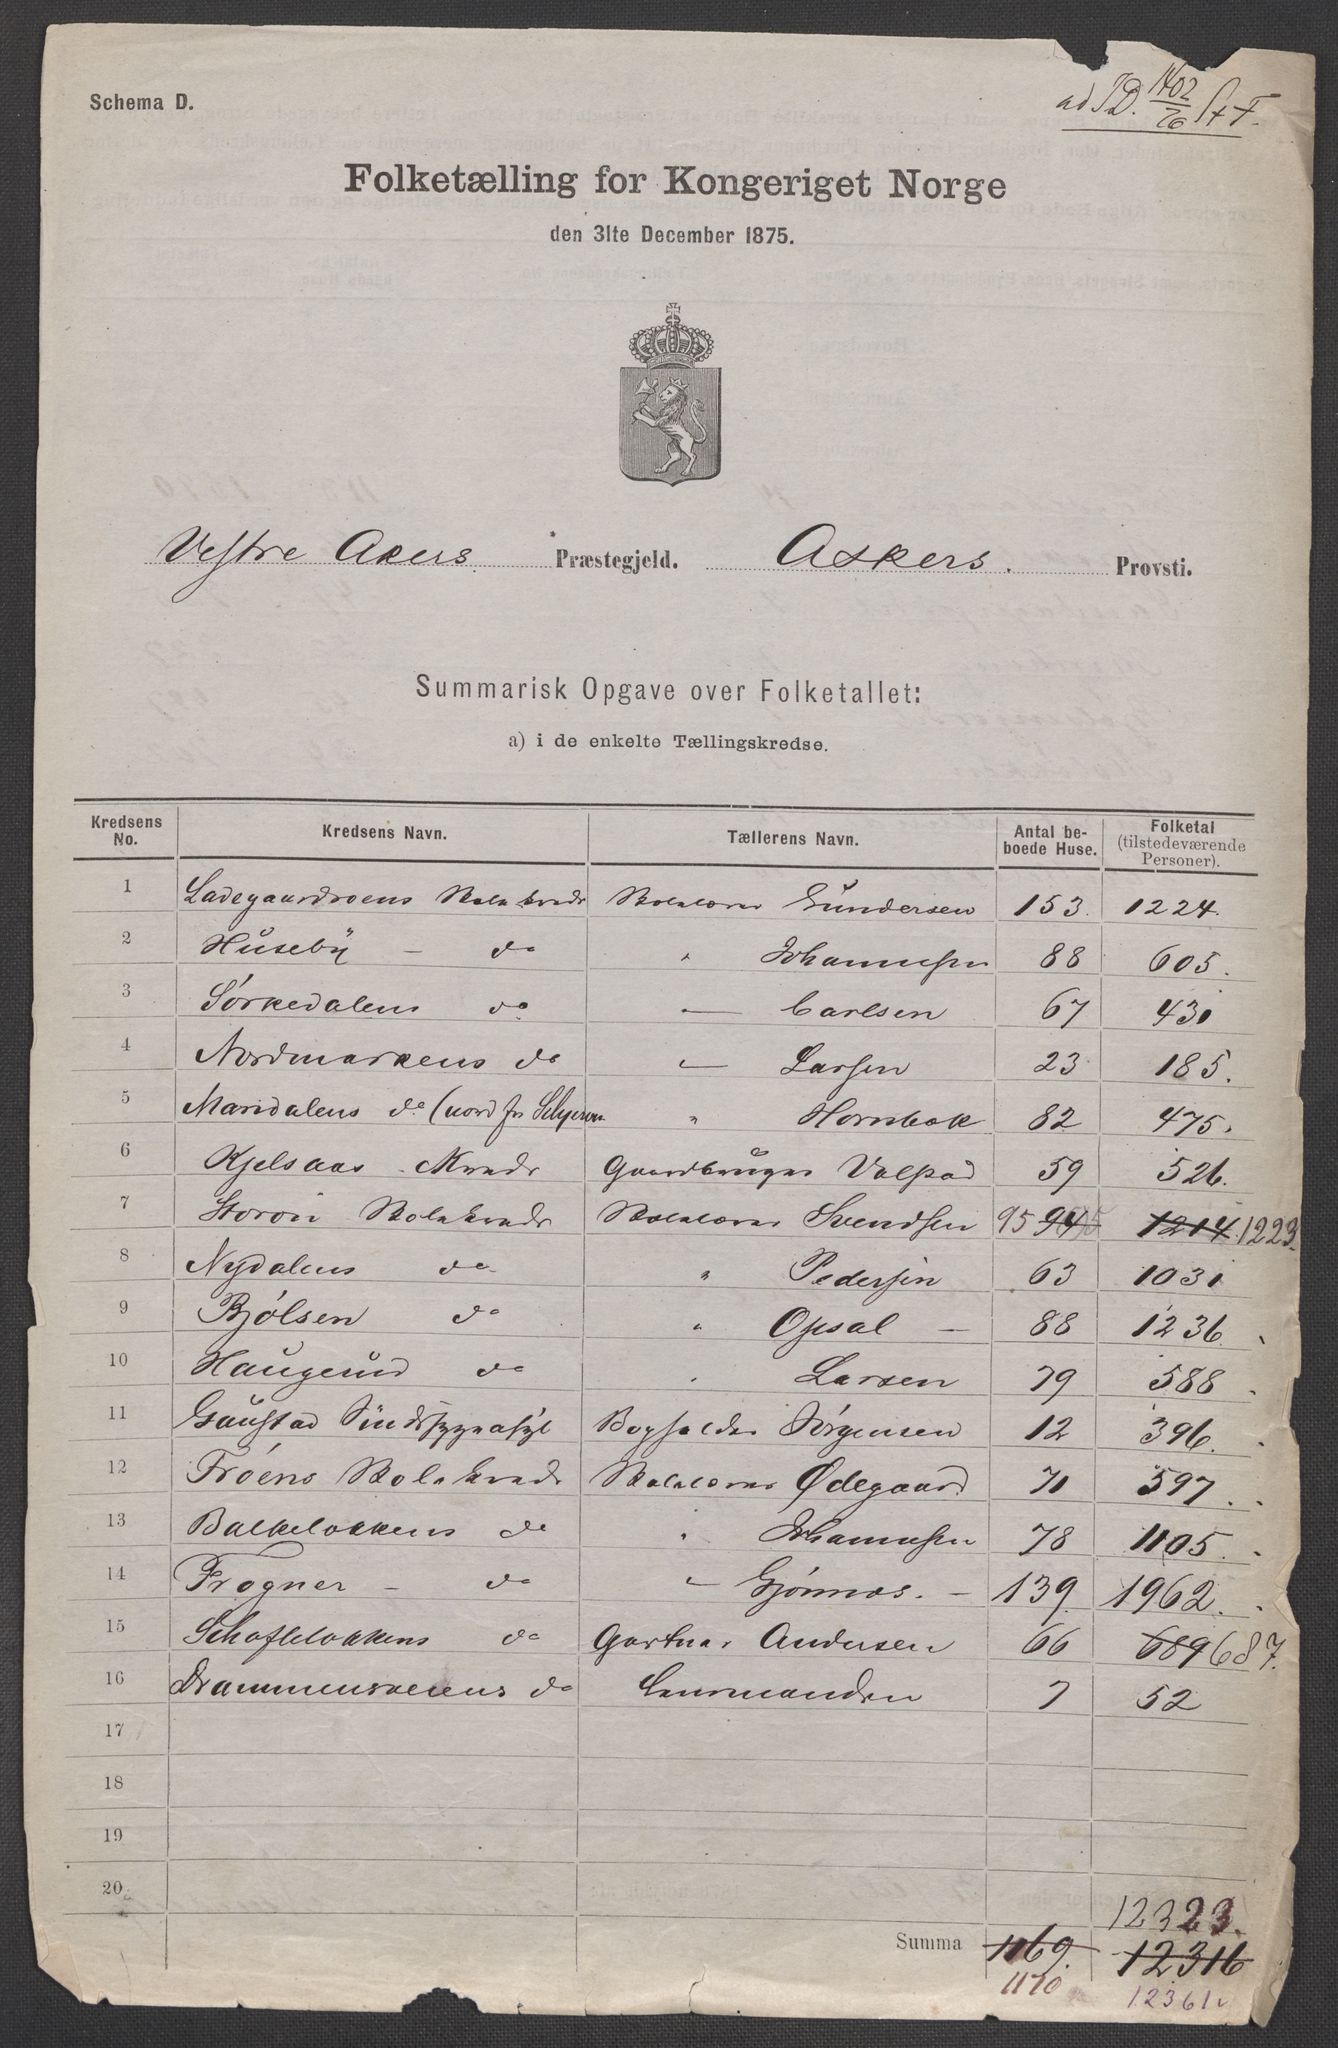 ad J.D. 1402/76 St F.
Schema D.
Folketælling for Kongeriget Norge
den 31te December 1875.
Vestre Akers Præstegjeld. Askers. Provsti.
Summarisk Opgave over Folketallet:
a) i de enkelte Tællingskredse.
Kredsens No. Kredsens Navn. Tællerens Navn. Antal beboede Huse. Folketal (tilstedeværende Personer).
1 Ladegaardsøens Skolekreds Skolelærer Gundersen 153. 1224.
2 Huseby – do " Johannesen 88 605.
3 Sørkedalens do — Carlsen 67 431
4 Nordmarkens do — Larsen 23 185.
5 Maridalens do (nord for Skjærven " Hornbæk 82 475.
6 Kjelsaas Kreds Gaardbruger Valstad 59 526.
7 Storøn Skolekreds Skolelærer Svendsen 95 94 95 1214. 1223.
8 Nydalens do " Pedersen 63 1031
9 Bjølsen do " Opsal — 88 1236.
10 Haugerud do " Larsen 79 588.
11 Gaustad Sindssygeasyl Bogholder Jørgensen 12 396.
12 Frøens Skolekreds Skolelærer Ødegaard 71 597.
13 Balkeløkkens do " Johannesen 78 1105.
14 Frogner – do " Gjønnæs. — 139. 1962.
15 Schafteløkkens do Gartner Andersen 66 689 687.
16 Drammensveiens do Lensmanden 7 52
17
18
19
20
12323.
Summa 1169. 12316
1170 12361